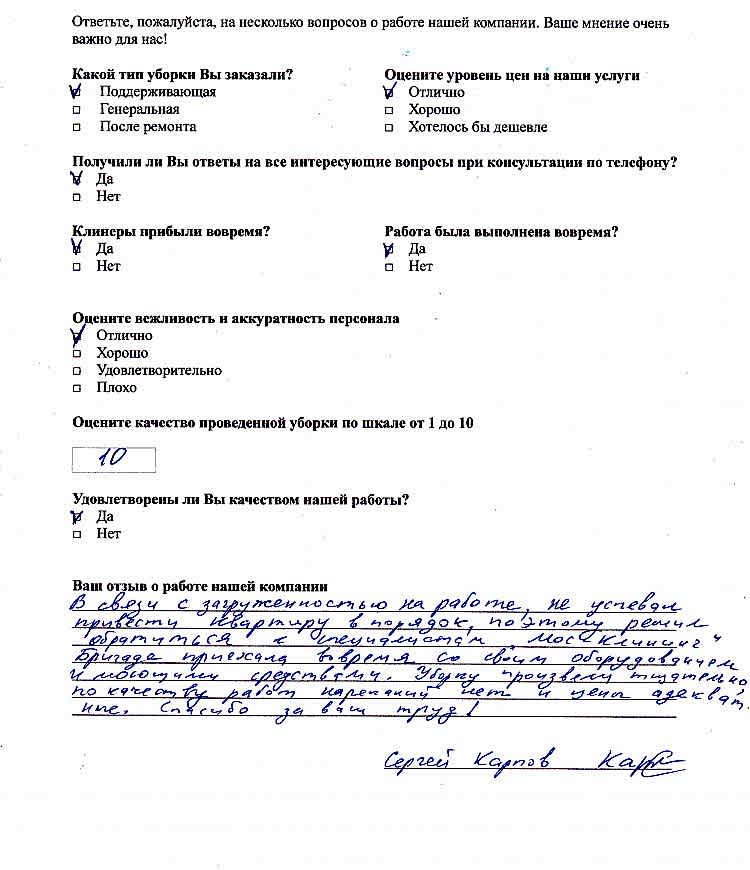 Ответьте, пожалуйста, на несколько вопросов о работе нашей компании. Ваше мнение очень
важно для нас!
Какой тип уборки Вы заказали? Оцените уровень цен на наши услуги
Поддерживающая Отлично
Генеральная Хорошо
После ремонта Хотелось бы дешевле
Получили ли Вы ответы на все интересующие вопросы при консультации по телефону?
Да
Нет
Клинеры прибыли вовремя? Работа была выполнена вовремя?
Да Да
Нет Нет
Оцените вежливость и аккуратность персонала
Отлично
Хорошо
Удовлетворительно
Плохо
Оцените качество проведенной уборки по шкале от 1 до 10
10
Удовлетворены ли Вы качеством нашей работы?
Да
Нет
Ваш отзыв о работе нашей компании
В связи с загруженностью на работе, не успевал
привести квартиру в порядок, поэтому решил
обратиться к специалистам „МосКлининг“
Бригада приехала вовремя со своим оборудованием
и моющими средствами. Уборку произвели тщательно
по качеству работ нареканий нет и цены адекват-
ные. Спасибо за ваш труд!
Сергей Карпов